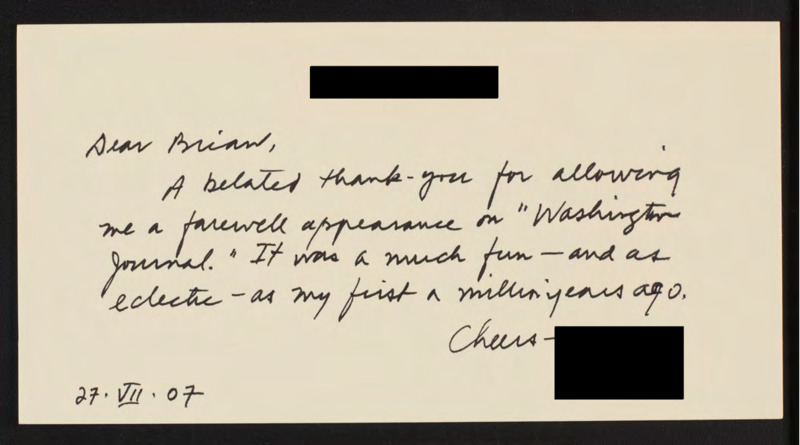 Dear Brian,
A belated thank-you for allowing
me a farewell appearance on "Washington
Journal." It was a much fun — and as
eclectic — as my first a million years ago.
Cheers —
27. VII. 07